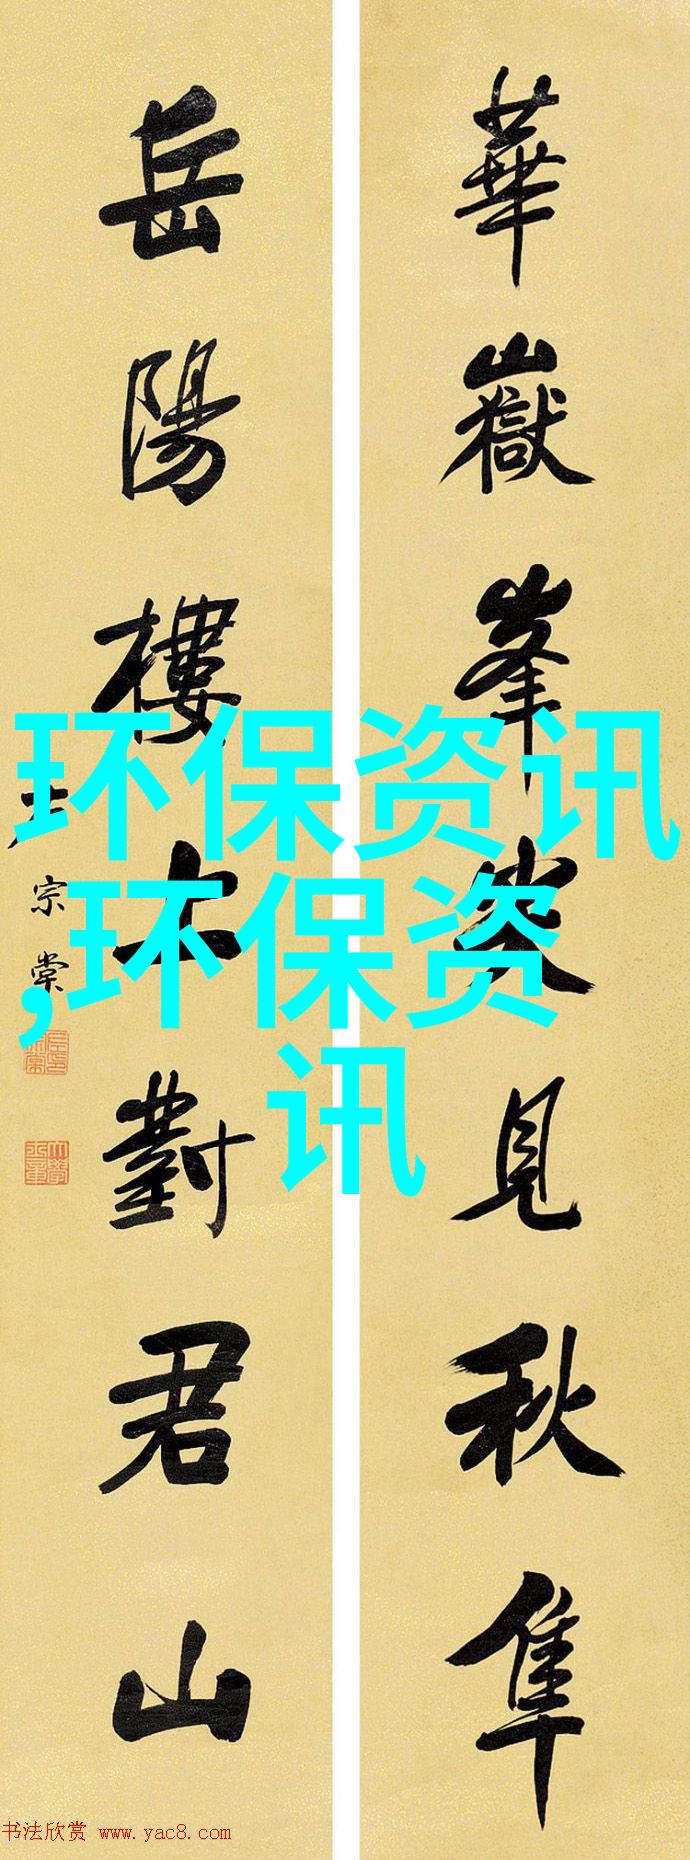 華嶽峯尖見秋隼
岳陽樓上對君山
左宗棠
环保资讯
,环保资
讯
书法欣赏 www.yac8.com